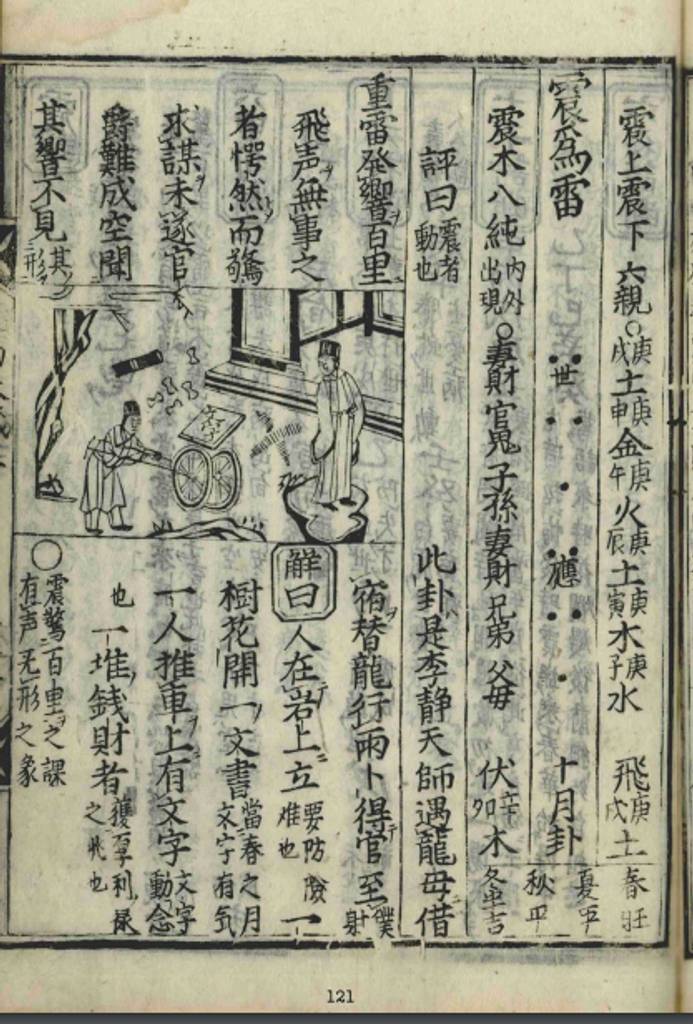 震上震下 六親○庚戌土庚申金庚午火庚辰土庚寅木庚子水 飛庚戌土 春旺
震為雷 世 應 十月卦 夏平 秋平
震木八純内外出現○妻財官鬼子孫妻財兄弟父母 伏辛卯木 冬吉
評曰震者動也
此卦是李静天師遇龍母借
重雷発響百里
飛声無事之
者愕然而驚
求謀未遂官
爵難成空聞
其響不見其形
宿替龍行雨卜得官至僕射
解曰人在岩上立要防險难也一
樹花開一文書當春之月文字有気
一人推車上有文字文字動念
也一堆錢財者獲厚利祿之兆也
○震驚百里之課有声无形之象
121